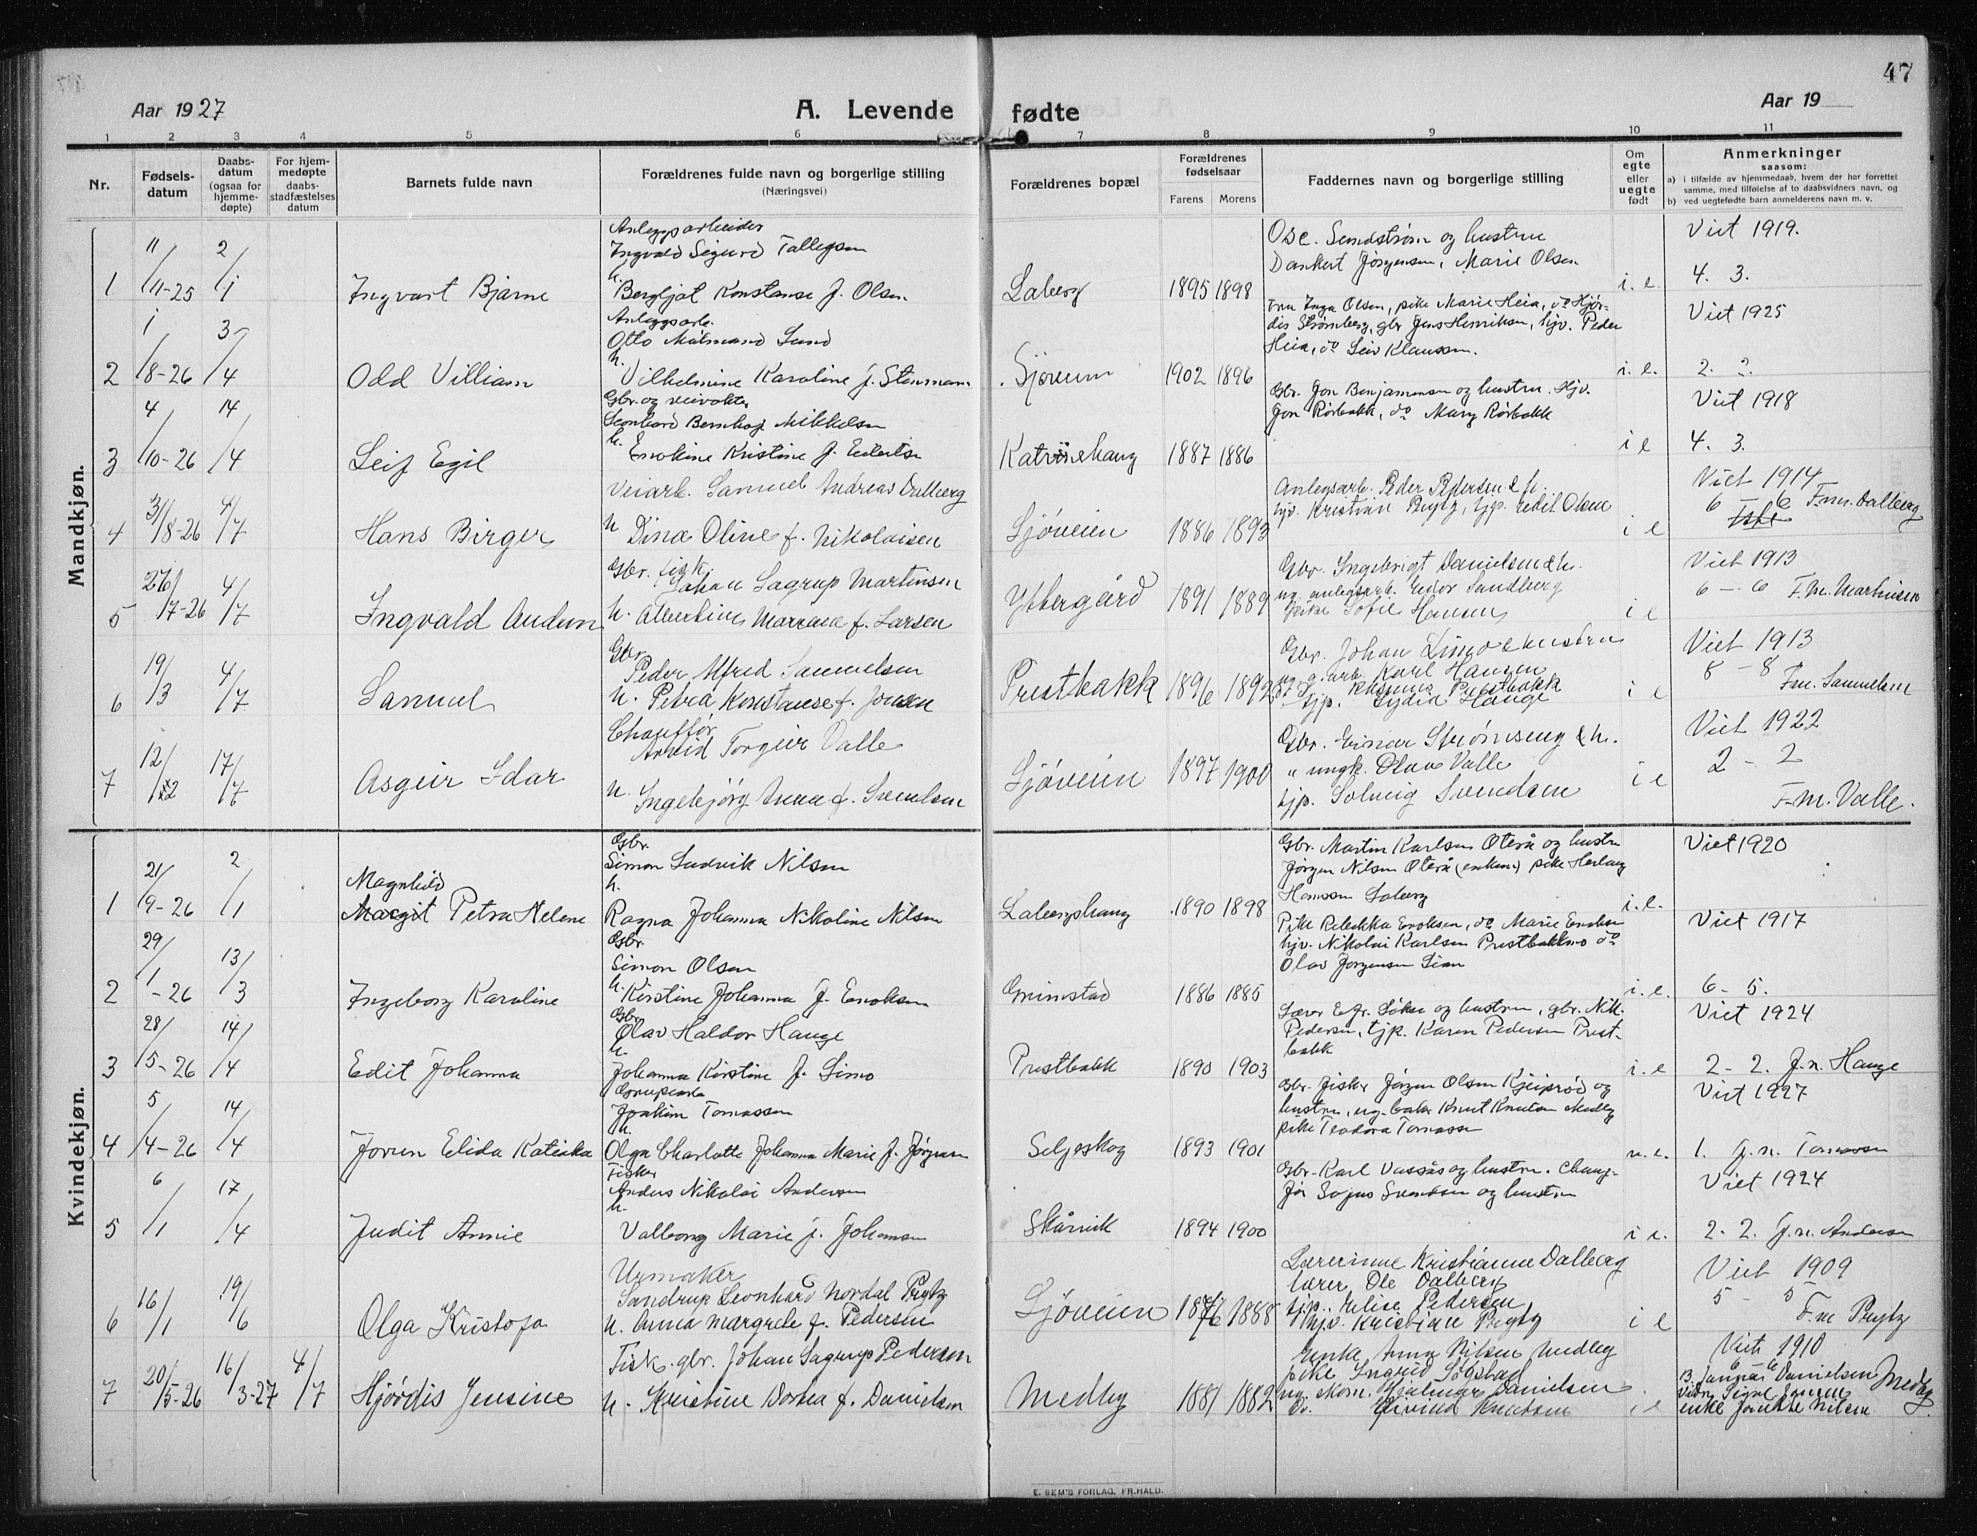 47
Aar 1927
A. Levende fødte
Aar 19
1 2 3 4 5 6 7 8 9 10 11
Nr.
Fødsels-
datum
Daabs-
datum
(ogsaa for
hjemme-
døpte)
For hjem-
medøpte
daabs-
stadfæstelses
datum
Barnets fulde navn
Forældrenes fulde navn og borgerlige stilling
(Næringsvei)
Forældrenes bopæl
Forældrenes
fødselsaar
Farens Morens
Faddernes navn og borgerlige stilling
Om
egte
eller
uegte
født
Anmerkninger
saasom:
a) i tilfælde av hjemmedaab, hvem der har forrettet
samme, med tilføielse af to daabsvidners navn, og
b) ved uegtefødte barn anmelderens navn m. v.
Mandkjøn.
Anleggsarbeider
Ingvald Sigurd Tallegsen
1 11/11-25 2/1 Ingvart Bjarne
h. Bergljot Konstanse f. Olsen
Laberg 1895 1898
Osc. Sundstrøm og hustru
Dankert Jørgensen, Marie Olsen
i. e.
Viet 1919.
4. 3.
Anleggsarb.
Otto Malmand Lund
2 1/8-26 3/4 Odd Villiam
h. Vilhelmine Karoline f. Stenmann
Sjøveien 1902 1896
Fru Inga Olsen, pike Marie Heia, do Hjør-
dis Strømberg, gbr Jens Henriksen, hjv. Peder
Heia, do Leiv Klaussen.
i. e.
Viet 1925
2. 2.
Gbr. og veivokter
Leonhard Bernhof Mikkelsen
3 4/10-26 14/4 Leif Egil
h. Enokine Kristine f.
Katrinehaug 1887 1886
Gbr. Jon Benjaminsen og hustru. Hjv.
Jon Rørbakk, do Mary Rørbakk
i e
Viet 1918
4. 3.
Veiarb. Samuel Andreas Dalberg
4 3/8-26 4/7 Hans Birger
h Dina Oline f. Nikolaisen
Sjøveien 1886 1893
Anlegsarb. Peder Pedersen & h.
hjv. Kristian Prytz, tjp. Edit Olsen
i e
Viet 1914
6 6 F.m. Dalberg
Gbr. fisk.
Johan Lagrup Martinsen
5 26/17-26 4/7 Ingvald Audun
h. Albertine Marcana f. Larsen
Yttergård 1891 1889
Gbr. Ingebrigt Danielsen & h.
ug. anlegsarb. Eidor Sandberg
pike Sofie Hansen
i e
Viet 1913
6 - 6 F.m. Martinsen
Gbr
Peder Alfred Samuelsen
6 19/3 4/7 Samuel
h. Petra Konstanse f. Jensen
Prestbakk 1896 1892
Gbr. Johan Limo & hustru
ug. g. arb. Karl Hansen
Prestbakk
tjp. Lydia Hauge
i e
Viet 1913
8 - 8
Fm. Samuelsen
Chauffør
Arvid Torgeir Valle
7 12/2 17/7 Asgeir Idar
h. Ingebjørg Anna f. Svendsen
Sjøveien 1897 1900
Gbr. Einar Strømseng & h.
" ungk. Olav Valle
tjp. Solveig Svendsen
i e
Viet 1922
2 - 2
F.m. Valle.
Kvindekjøn.
Gbr.
Simon Ludvik Nilsen
h.
Magnhild
1 21/9-26 2/1 Margit Petra Helene
Ragna Johanna Nikoline Nilsen
Labergshaug 1890 1898
Gbr. Martin Karlsen Oterå og hustru
Jørgen Nilsen Oterå (enkem) pike Herlaug
Hanssen Laberg
i. e.
Viet 1920
Gbr.
Simon Olsen
2 29/1-26 13/3 Ingeborg Karoline
h. Kirstine Johanna f. Enoksen
Grimstad 1886 1885
Pike Rebekka Enoksen, do Marie Enoksen
hjv. Nikolai Karlsen Prestbakkmo do
Olav Jørgensen Lian
i. e.
Viet 1917
6 - 5.
Gbr
Olav Haldor Hauge
h.
3 28/5-26 14/4 Edit Johanna
Johanna Kirstine f. Limo
Prestbakk 1890 1903
Lærer E. Gr. Løkse og hustru, gbr. Nik.
Pedersen, tjp. Karen Pedersen Prest-
bakk
i. e
Viet 1924
2 - 2. F.n. Hauge
Joakim Tomassen
h.
4 5/4-26 14/4 Jorun Elida Katinka
Olga Charlotte Johanna Marie f. Jørgensen
Seljeskog 1893 1901
Gbr. fisker Jørgen Olsen Kjeiprød og
hustru, ug. baker Knut Knutsen Medby
pike Teodora Tomassen
u. e.
Viet 1927
1. F.n. Tomassen
Fisker
Anders Nikolai Andersen
h.
5 6/1 17/4 Judit Annie
Valborg Marie f. Johansen
Skårvik 1894 1900
Gbr. Karl Vassås og hustru. Chauf-
før Sofus Svendsen og hustru
i e.
Viet 1924
2 - 2. F.n. Andersen
Urmaker
Sandrup Leonhard Nordal Prytz
6 16/1 19/6 Olga Kristofa
h. Anna Margrete f. Pedersen
Sjøveien 1876 1888
Lærerinne Kristianne Dalberg
lærer Ole Dalberg
tjp. Elise Pedersen
hjv. Kristian Prytz
i e
Viet 1909
5 - 5
F.m Prytz
Fisk. gbr. Johan Lagrup Pedersen
7 20/5-26 16/3-27 4/7 Hjørdis Jensine
h. Kristine Dortea f. Danielsen
Medby 1881 1882
Enke Anna Nilsen Medby
pike Ingrid Søgstad
ug. skom. Hjalmar Danielsen
Do. Eivind Knutsen
i e
Viet 1910
6 - 6
B. Danielsen
Vidn. Signe Jensen
enke Nilsen
Medby
E. SEM'S FORLAG, FR.HALD.